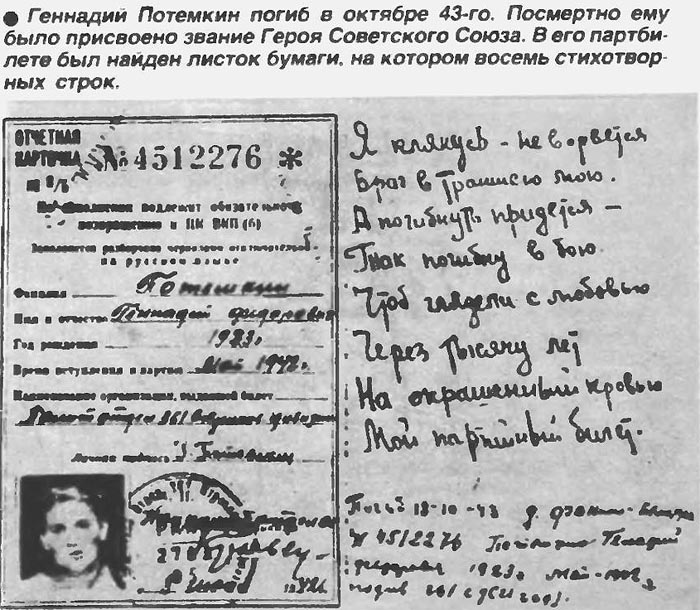 ● Геннадий Потемкин погиб в октябре 43-го. Посмертно ему
было присвоено звание Героя Советского Союза. В его партби-
лете был найден листок бумаги, на котором восемь стихотвор-
ных строк.
ОТЧЕТНАЯ
КАРТОЧКА № 4512276 *
По заполнении подлежит обязательному
возвращению в ЦК ВКП(б)
на русском языке
Фамилия Потемкин
Имя и отчество
Год рождения 1923г.
Время вступления в партию май 1942г.
Наименование организации, выдавшей билет
Личная подпись
Я клянусь - не ворвется
Враг в траншею мою.
А погибнуть придется -
Так погибну в бою.
Чтоб глядели с любовью
Через тысячу лет
На окрашенный кровью
Мой партийный билет.
Погиб 18-10-43 д.
№ 4512276 Потемкин Генадий
1923г. май